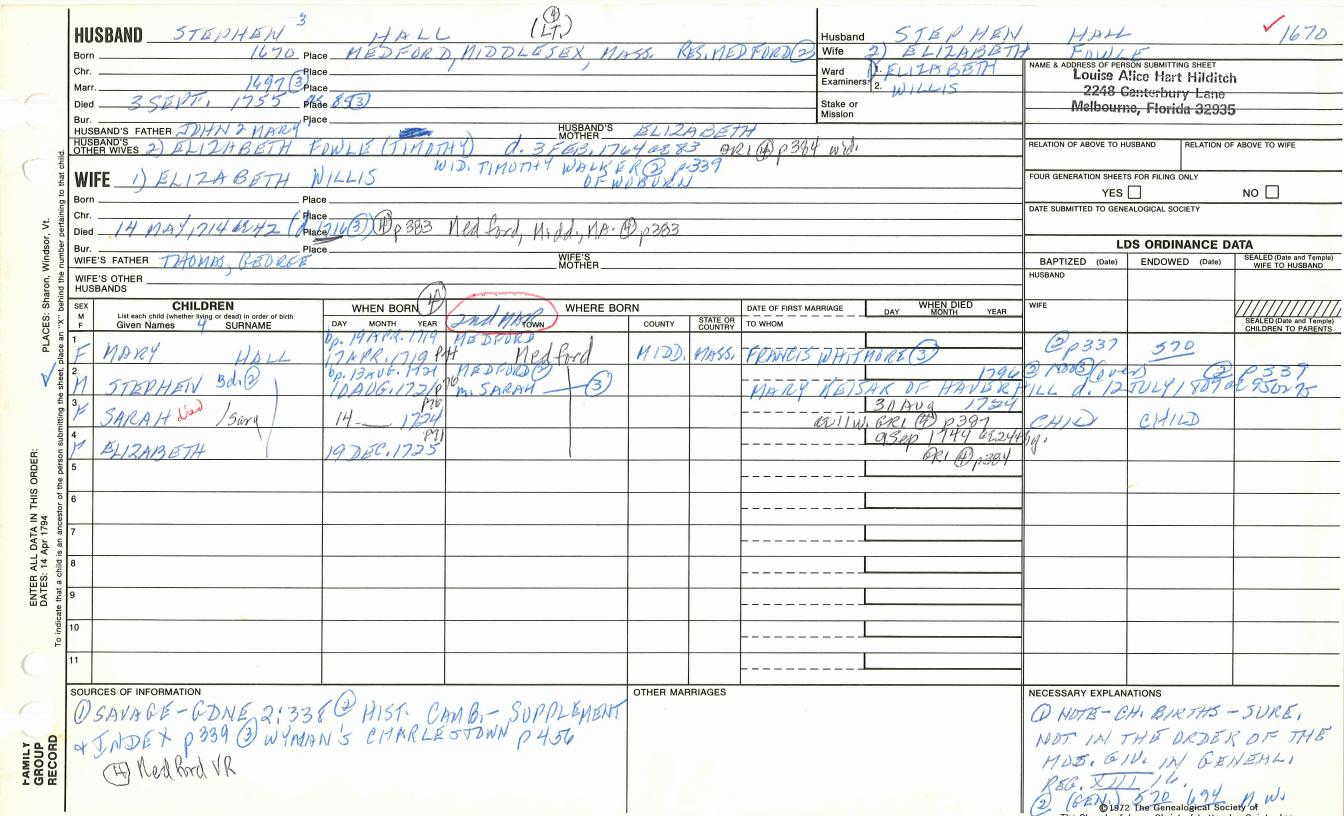 HUSBAND STEPHEN 3 HALL (LT.) ④
Born 1670 Place MEDFORD, MIDDLESEX, MASS. RES. MEDFORD ②
Chr. Place
Marr. 1697 ③ Place
Died 3 SEPT. 1755 Place AE 85 ③
Bur. Place
HUSBAND'S FATHER JOHN 2 MARY HUSBAND'S MOTHER ELIZABETH
HUSBAND'S OTHER WIVES 2) ELIZABETH FOWLE (TIMOTHY) d. 3 FEB. 1764 AE 83 GRI ④ p384 wid.
WID. TIMOTHY WALKER ② p339
OF WOBURN
WIFE 1) ELIZABETH WILLIS
Born Place
Chr. Place
Died 14 MAY, 1714 AE 42 (d. 1716 ③) Place ④ p383 Medford, Midd., MA. ④ p383
Bur. Place
WIFE'S FATHER THOMAS, GEORGE WIFE'S MOTHER
WIFE'S OTHER HUSBANDS
Husband STEPHEN HALL ✓ 1670
Wife 2) ELIZABETH FOWLE
Ward Examiners: 1. ELIZABETH
2. WILLIS
Stake or Mission
NAME & ADDRESS OF PERSON SUBMITTING SHEET
Louise Alice Hart Hilditch
2248 Canterbury Lane
Melbourne, Florida 32935
RELATION OF ABOVE TO HUSBAND RELATION OF ABOVE TO WIFE
FOUR GENERATION SHEETS FOR FILING ONLY
YES NO
DATE SUBMITTED TO GENEALOGICAL SOCIETY
LDS ORDINANCE DATA
BAPTIZED (Date) ENDOWED (Date) SEALED (Date and Temple) WIFE TO HUSBAND
HUSBAND
WIFE
SEALED (Date and Temple) CHILDREN TO PARENTS
SEX M F CHILDREN WHEN BORN ④ WHERE BORN DATE OF FIRST MARRIAGE WHEN DIED
List each child (whether living or dead) in order of birth
Given Names 4 SURNAME DAY MONTH YEAR 2nd MAR TOWN COUNTY STATE OR COUNTRY TO WHOM DAY MONTH YEAR
1 bp. 19 APR. 1719 MEDFORD
F MARY HALL 17 APR. 1719 Medford MIDD. MASS. FRANCIS WHITMORE ③ ② p337 570
2 bp. 13 AUG. 1721 MEDFORD ② 1796 ② (over) ② p339
M STEPHEN Bd. ② 10 AUG. 1721 p76 m. SARAH ③ MARY KEISAR OF HAVERHILL d. 12 JULY
3 p76 30 Aug 1724
F SARAH died / Sary 14 1724 GRI ④ p387 CHILD CHILD
4 p71 9 Sep 1744 AE 24
F ELIZABETH 19 DEC. 1725 GRI ④ p384
5
6
7
8
9
10
11
SOURCES OF INFORMATION
① SAVAGE - GDNE 2:338 ② HIST. CAMB. - SUPPLEMENT
& INDEX p339 ③ WYMAN'S CHARLESTOWN p456
④ Medford VR
OTHER MARRIAGES
NECESSARY EXPLANATIONS
① NOTE - CH. BIRTHS - SURE,
NOT IN THE ORDER OF THE
MDS. GIV. IN GENEAL.
REG. XIII 16.
② (GEN.) 570 694 N.W.
©1972 The Genealogical Society of
PLACES: Sharon, Windsor, Vt.
ENTER ALL DATA IN THIS ORDER:
DATES: 14 Apr 1794
To indicate that a child is an ancestor of the person submitting the sheet, place an "X" behind the number pertaining to that child.
FAMILY GROUP RECORD